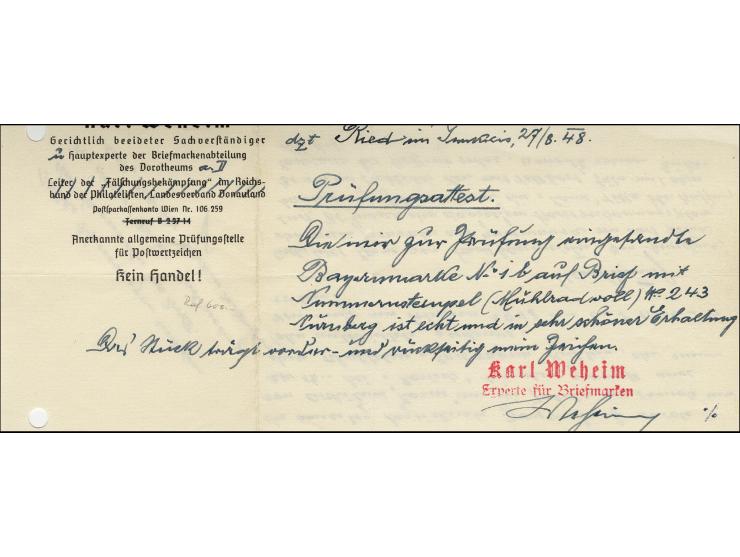 Karl Weheim
Gerichtlich beeideter Sachverständiger
u Hauptexperte der Briefmarkenabteilung
des Dorotheums
Leiter der „Fälschungsbekämpfung" im Reichs-
bund der Philatelisten, Landesverband Donauland
Postsparkassenkonto Wien Nr. 106 259
Fernruf B-2 37-14
Anerkannte allgemeine Prüfungsstelle
für Postwertzeichen
Kein Handel!
dzt Ried im Innkreis, 27/8. 48.
Prüfungsattest.
Die mir zur Prüfung eingesandte
Bayernmarke No 1b auf Brief mit
Nummernstempel (Mühlrad voll) No 243
Nürnberg ist echt und in sehr schöner Erhaltung
Das Stück trägt vorder- und rückseitig mein Zeichen.
Karl Weheim
Experte für Briefmarken
Weheim